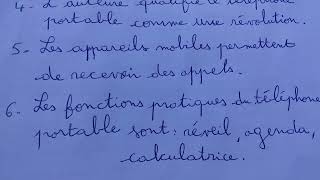 4- L'auteure qualifie le téléphone
portable comme une révolution.
5- Les appareils mobiles permettent
de recevoir des appels.
6- Les fonctions pratiques du téléphone
portable sont : réveil, agenda,
calculatrice.